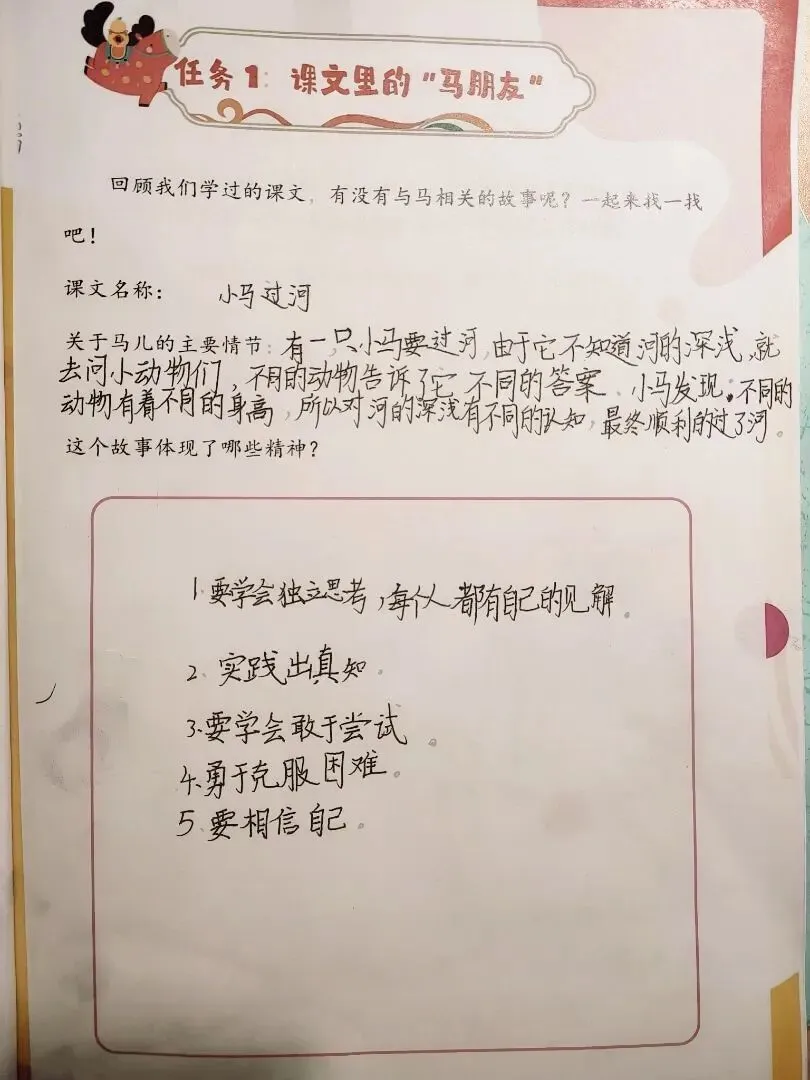 任务1：课文里的“马朋友”
回顾我们学过的课文，有没有与马相关的故事呢？一起来找一找
吧！
课文名称： 小马过河
关于马儿的主要情节：有一只小马要过河,由于它不知道河的深浅,就
去问小动物们，不同的动物告诉了它 不同的答案、小马发现：不同的
动物有着不同的身高，所以对河的深浅有不同的认知，最终顺利的过了河。
这个故事体现了哪些精神？
1.要学会独立思考，每个人都有自己的见解。
2、实践出真知。
3.要学会敢于尝试。
4.勇于克服困难。
5、要相信自己。